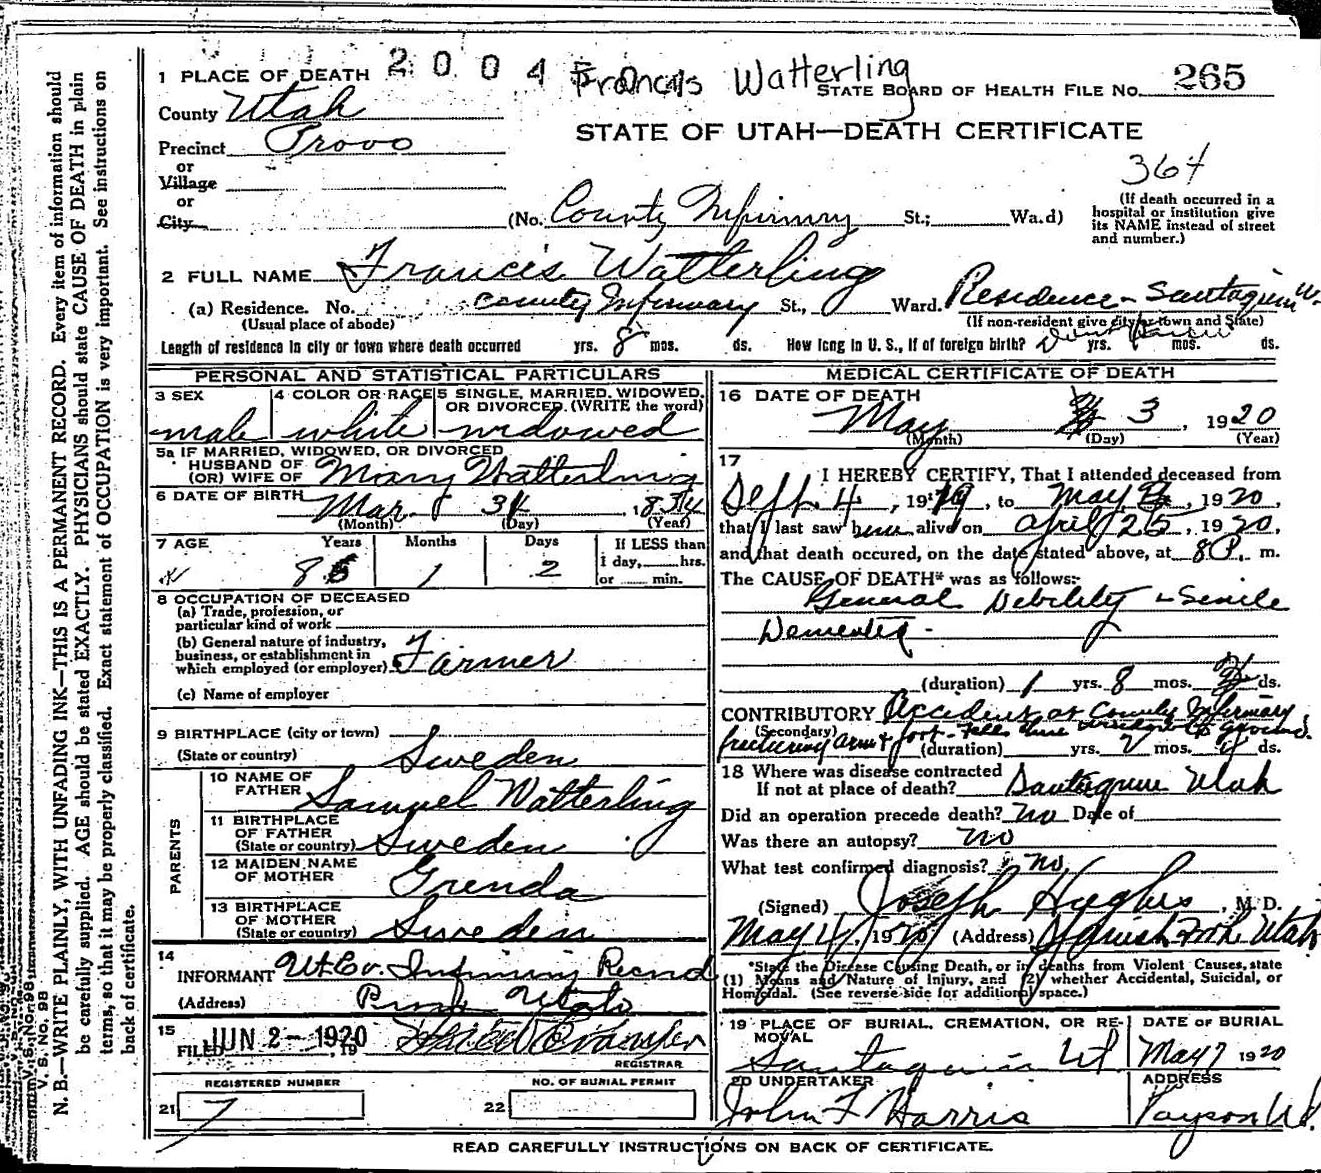 2004 Francis Watterling
1 PLACE OF DEATH
STATE BOARD OF HEALTH FILE NO. 265
County Utah
STATE OF UTAH—DEATH CERTIFICATE
Precinct Provo
364
or
Village
or
City
(No. County Infirmry St.; Wa.d)
(If death occurred in a
hospital or institution give
its NAME instead of street
and number.)
2 FULL NAME Francis Watterling
(a) Residence. No. County Infirmary St., Ward. Residence - Santaquin
(Usual place of abode)
(If non-resident give city or town and State)
Length of residence in city or town where death occurred yrs. 8 mos. ds. How long in U. S., if of foreign birth? yrs. mos. ds.
PERSONAL AND STATISTICAL PARTICULARS
3 SEX
male
4 COLOR OR RACE
white
5 SINGLE, MARRIED, WIDOWED,
OR DIVORCED (WRITE the word)
widowed
5a IF MARRIED, WIDOWED, OR DIVORCED
HUSBAND OF
(OR) WIFE OF Mary Watterling
6 DATE OF BIRTH Mar. 31, 1834
(Month) (Day) (Year)
7 AGE Years Months Days If LESS than
1 day, hrs.
or min.
86 1 2
8 OCCUPATION OF DECEASED
(a) Trade, profession, or
particular kind of work
(b) General nature of industry,
business, or establishment in
which employed (or employer) Farmer
(c) Name of employer
9 BIRTHPLACE (city or town)
(State or country) Sweden
PARENTS
10 NAME OF
FATHER Samuel Watterling
11 BIRTHPLACE
OF FATHER
(State or country) Sweden
12 MAIDEN NAME
OF MOTHER Grenda
13 BIRTHPLACE
OF MOTHER
(State or country) Sweden
14
INFORMANT Ut. Co. Infirmiry Record
(Address) Provo Utah
15
FILED JUN 2 - 1920, 19
REGISTRAR
REGISTERED NUMBER
21 7
NO. OF BURIAL PERMIT
22
MEDICAL CERTIFICATE OF DEATH
16 DATE OF DEATH
May 3, 1920
(Month) (Day) (Year)
17
I HEREBY CERTIFY, That I attended deceased from
Sept. 4, 1919, to May 3, 1920,
that I last saw him alive on April 25, 1920,
and that death occured, on the date stated above, at 8 P. m.
The CAUSE OF DEATH* was as follows:-
General Debility & Senile
Dementia.
(duration) 1 yrs. 8 mos. ds.
CONTRIBUTORY Accident at County Infirmary
(Secondary)
fracturing arm & foot - fell ground.
(duration) yrs. 2 mos. ds.
18 Where was disease contracted
If not at place of death? Santaquin Utah
Did an operation precede death? No Date of
Was there an autopsy? No
What test confirmed diagnosis? no
(Signed) Joseph Hughes, M. D.
May 4, 1920 (Address) Spanish Fork Utah
*State the Disease Causing Death, or in deaths from Violent Causes, state
(1) Means and Nature of Injury, and (2) whether Accidental, Suicidal, or
Homicidal. (See reverse side for additional space.)
19 PLACE OF BURIAL, CREMATION, OR RE-
MOVAL
Santaquin Ut
DATE OF BURIAL
May 7 1920
20 UNDERTAKER
John F Harris
ADDRESS
Payson Ut.
READ CAREFULLY INSTRUCTIONS ON BACK OF CERTIFICATE.
V. S. No. 98
N. B.—WRITE PLAINLY, WITH UNFADING INK—THIS IS A PERMANENT RECORD. Every item of information should
be carefully supplied. AGE should be stated EXACTLY. PHYSICIANS should state CAUSE OF DEATH in plain
terms, so that it may be properly classified. Exact statement of OCCUPATION is very important. See instructions on
back of certificate.